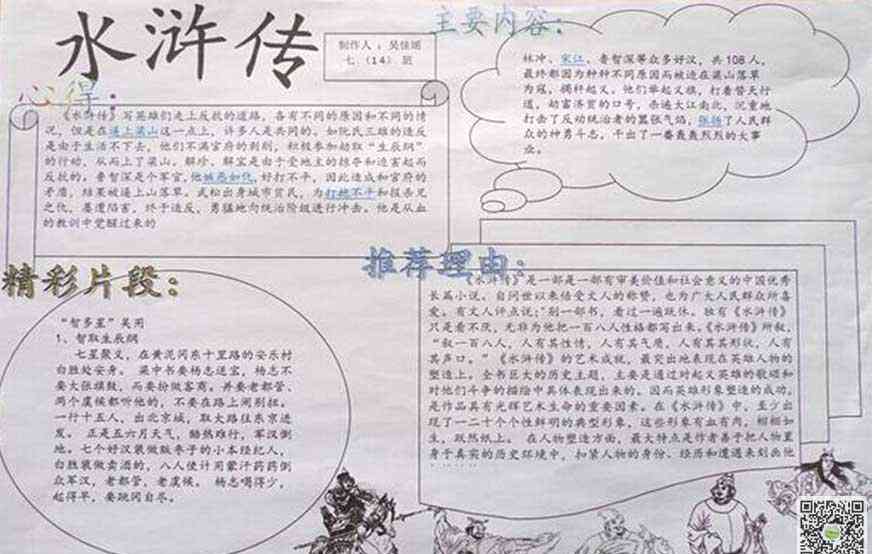 水浒传
制作人：吴佳瑶
七（14）班
主要内容：
林冲、宋江、鲁智深等众多好汉，共108人，
最终都因为种种不同原因而被迫在梁山落草
为寇，揭杆起义，他们举起义旗，打着替天行
道，劫富济贫的口号，杀遍大江南北，沉重地
打击了反动统治者的嚣张气焰，张扬了人民群
众的神勇斗志，干出了一番轰轰烈烈的大事
业。
心得：
《水浒传》写英雄们走上反抗的道路，各有不同的原因和不同的情
况，但是在逼上梁山这一点上，许多人是共同的。如阮氏三雄的造反
是由于生活不下去，他们不满官府的剥削，积极参加劫取“生辰纲”
的行动，从而上了梁山。解珍、解宝是由于受地主的掠夺和迫害起而
反抗的。鲁智深是个军官，他嫉恶如仇，好打不平，因此造成和官府的
矛盾，结果被逼上山落草。武松出身城市贫民，为打抱不平和报杀兄
之仇，屡遭陷害，终于造反，勇猛地向统治阶级进行冲击。他是从血
的教训中觉醒过来的
推荐理由：
《水浒传》是一部是一部有审美价值和社会意义的中国优秀
长篇小说。自问世以来倍受文人的称赞，也为广大人民群众所喜
爱。有文人评点说：“别一部书，看过一遍既休。独有《水浒传》
只是看不厌，无非为他把一百八人性格都写出来。《水浒传》所叙，
“叙一百八人，人有其性情，人有其气质，人有其其形状，人有
其声口。”《水浒传》的艺术成就，最突出地表现在英雄人物的
塑造上。全书巨大的历史主题，主要是通过对起义英雄的歌颂和
对他们斗争的描绘中具体表现出来的。因而英雄形象塑造的成功，
是作品具有光辉艺术生命的重要因素。在《水浒传》中，至少出
现了一二十个个性鲜明的典型形象，这些形象有血有肉，栩栩如
生，跃然纸上。 在人物塑造方面，最大特点是作者善于把人物置
身于真实的历史环境中，扣紧人物的身份、经历和遭遇来刻画他
精彩片段：
“智多星”吴用
1、智取生辰纲
七星聚义，在黄泥冈东十里路的安乐村
白胜处安身。 梁中书要杨志送宝，杨志不
要大张旗鼓，而要扮做客商。并要老都管、
两个虞候都听他的，不要在路上闹别扭。
一行十五人，出北京城，取大路往东京进
发。 正是五六月天气，酷热难行，军汉倒
地。七个好汉装做贩枣子的小本经纪人，
白胜装做卖酒的，八人使计用蒙汗药药倒
众军汉，老都管，老虞候。 杨志喝得少，
起得早，要跳冈自尽。